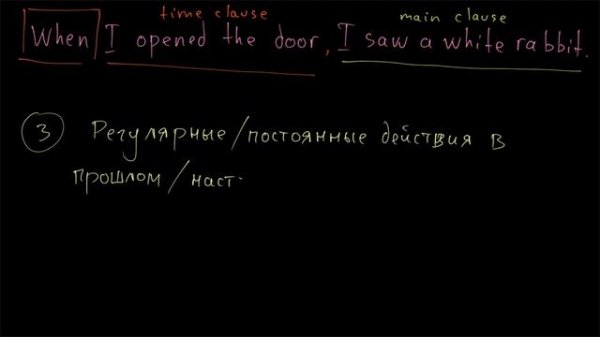 time clause main clause
When I opened the door, I saw a white rabbit.
3 Регулярные/постоянные действия в
прошлом/наст